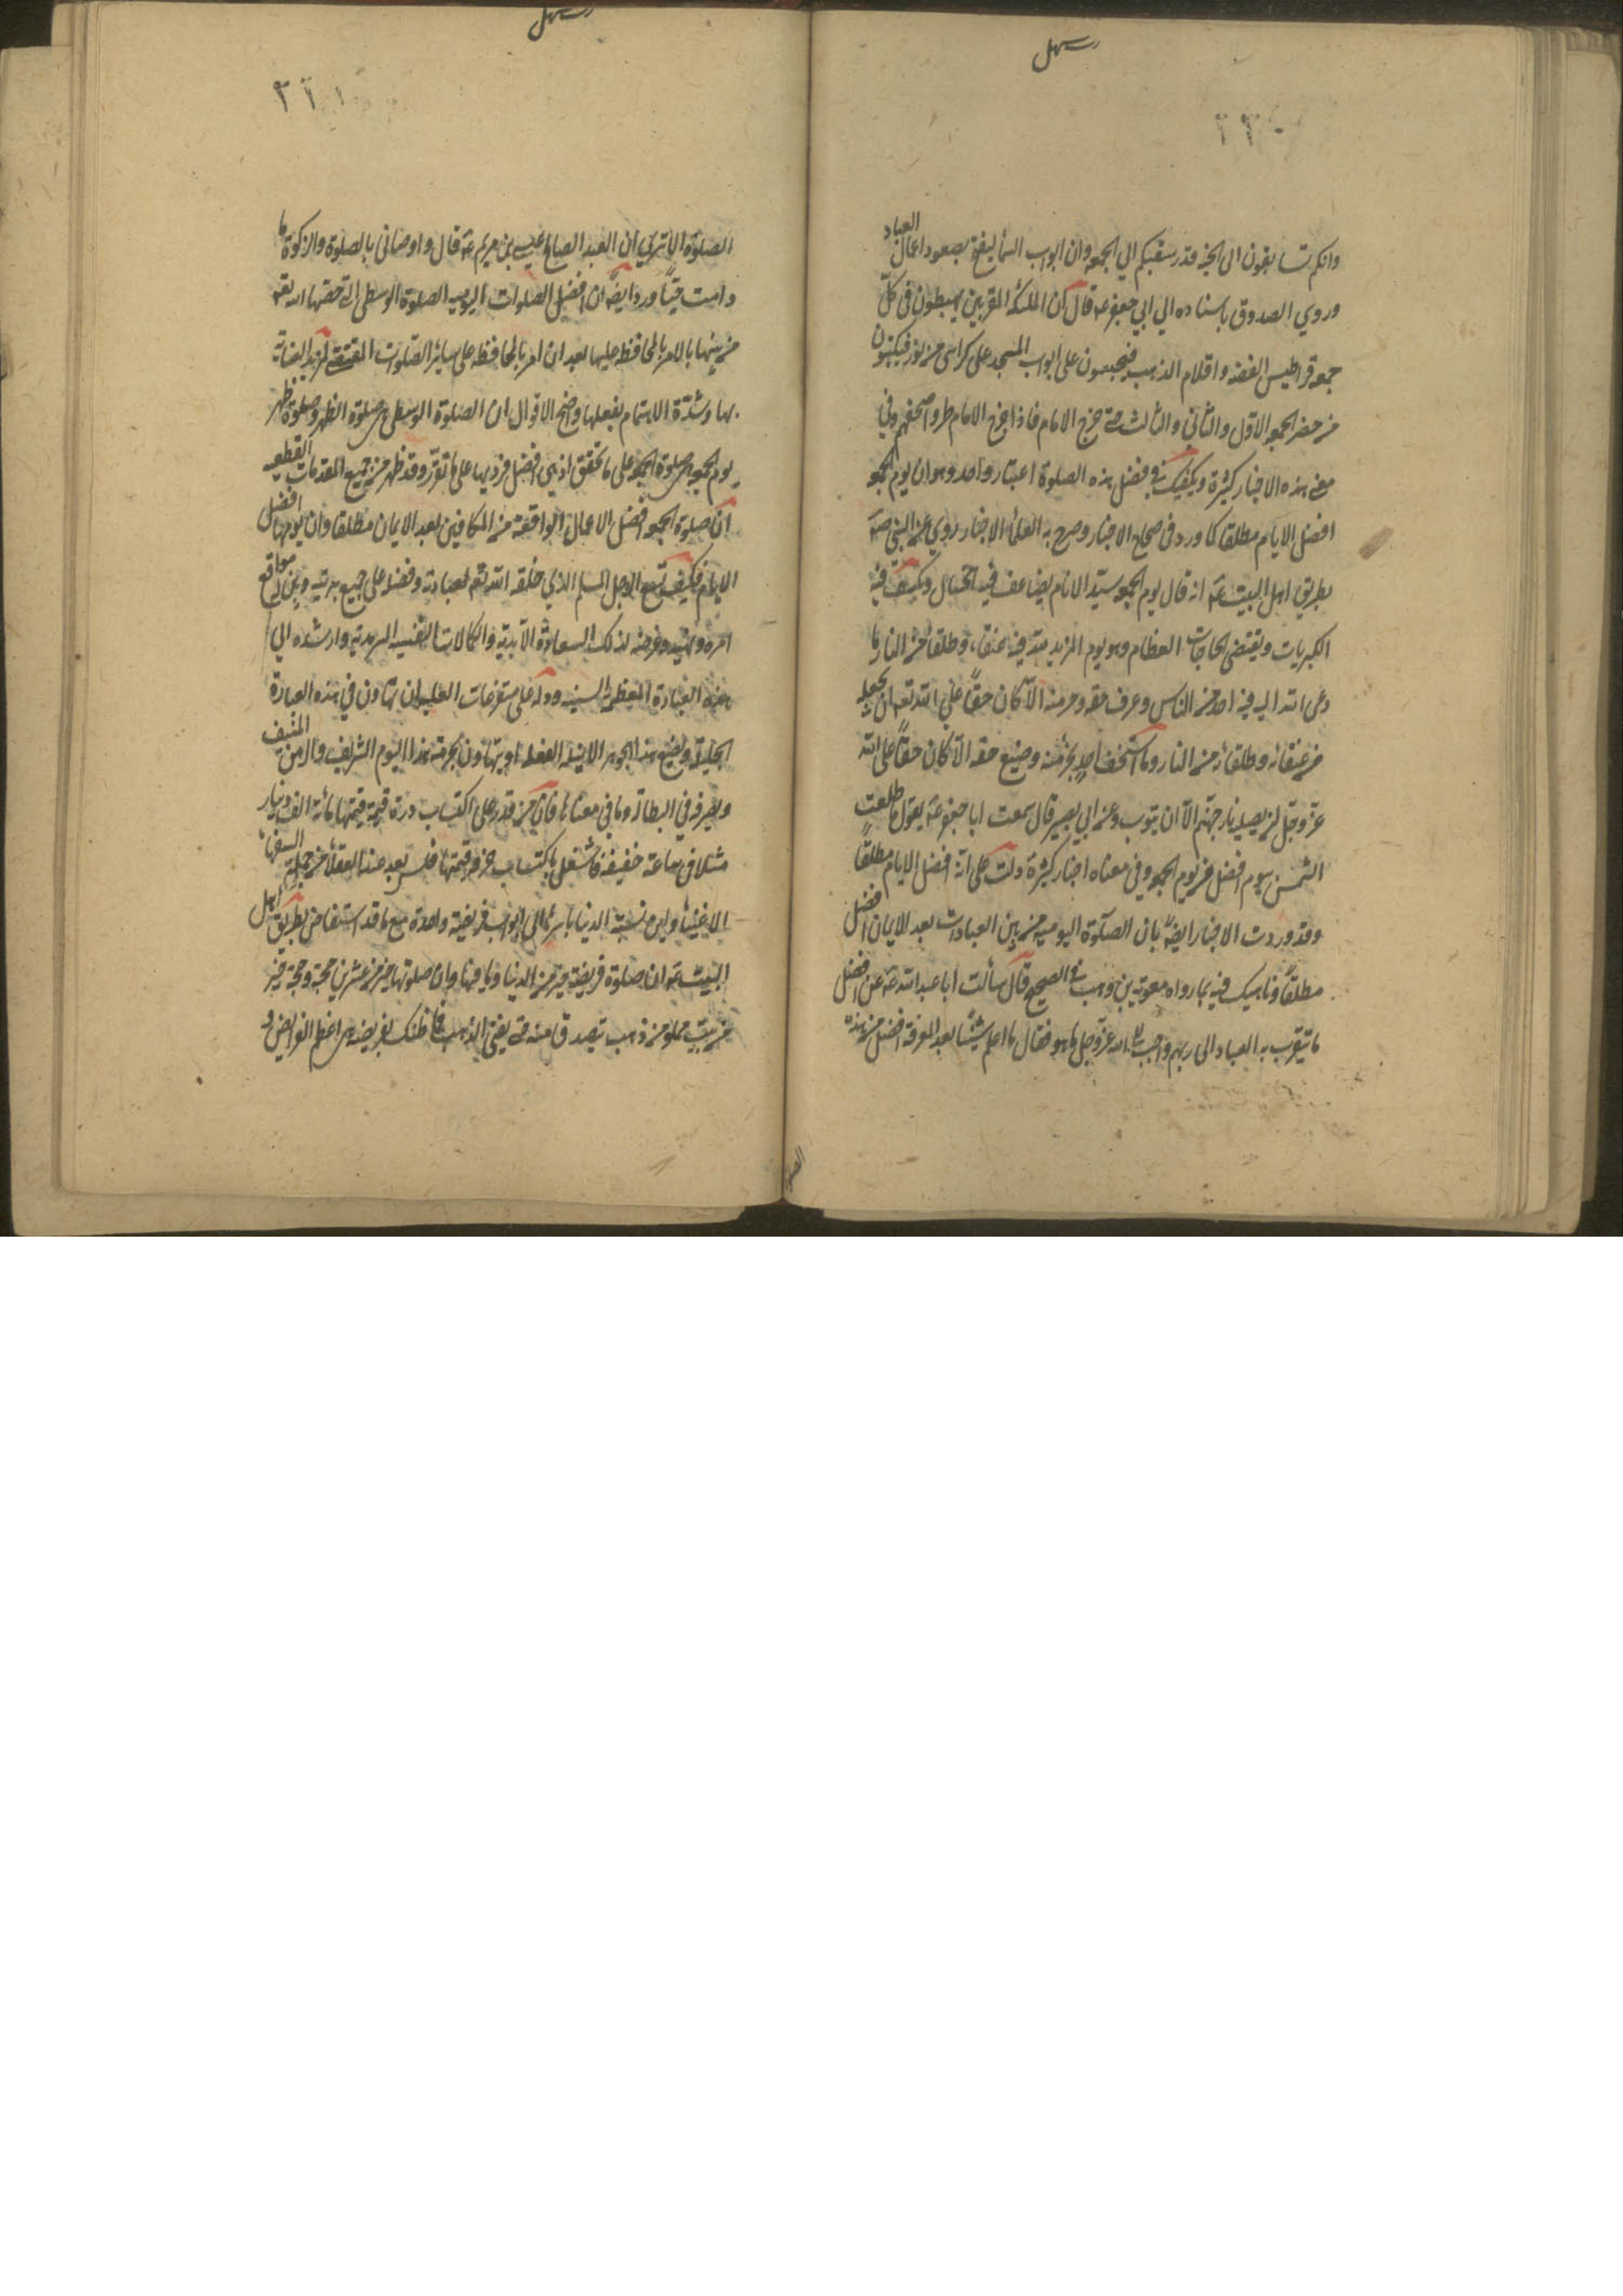 رسهل
٢٢٠
وانكم تتسابقون الى الجنة قدر سبقكم الي الجمعه وان ابواب السمآ ليفتح بصعود اعمال العباد
وروي الصدوق باسناده الي ابي جعفر عه قال ان الملئكة المقربين يهبطون في كلّ
جمعه قراطيس الفضه واقلام الذهب فيجلسون على ابواب المسجد على كراسى من نور فيكتبون
من حضر الجمعه الاوّل والثانى والثالث حتى يخرج الامام فاذا خرج الامام طووا صحفهم وفي
معنى هذه الاخبار كثيرة ويكفيك في فضل هذه الصلوة اعتبار واحد وهو ان يوم الجمعه
افضل الايام مطلقا كما ورد فى صحاح الاخبار وصرح به العلمآ الاخيار روي عن النبي صه
بطريق اهل البيت عه انه قال يوم الجمعه سيّد الايام يضاعف فيه الحسنات ويكشف فيه
الكربات ويقضى الحاجات العظام وهو يوم المزيد لله فيه عتقاء وطلقآ من النار ما
دعى الله اليه فيه احد من الناس وعرف حقه وحرمته الّا كان حقّاً علي الله تعه ان يجعله
من عتقائه وطلقائه من النار وما استخف احد بحرمته وضيع حقه الّا كان حقاً على الله
عزّ وجلّ ان يصليه نار جهنّم الّا ان يتوب وعن ابي بصير قال سمعت ابا جعفر عه يقول ما طلعت
الشمس بيوم افضل من يوم الجمعه وفى معناه اخبار كثيرة دلت على انّه افضل الايام مطلقاً
وقد وردت الاخبار ايضاً بان الصلوة اليوميه من بين العبادات بعد الايمان افضل
مطلقاً وناهيك فيه بما رواه معويه بن وهب فى الصحيح قال سألت ابا عبد الله عه عن افضل
ما يتقرب به العباد الى ربهم واحب الى الله عزّ وجل ما هو فقال ما اعلم شيئاً بعد المعرفة افضل من هذه
الصلوة
رسهل
٢٢١
الصلوة الا ترى ان العبد الصالح عيسى بن مريم عه قال واوصانى بالصلوة والزكوة ما
دامت حيّاً وورد ايضاً ان افضل الصلوات اليوميه الصلوة الوسطى التى خصّها الله تعه
من بينها بالامر بالمحافظة عليها بعد ان امر بالمحافظه على سائر الصّلوات المقتضي لمزيد العناية
بها وشدّة الاهتمام بفعلها واصح الاقوال ان الصلوة الوسطى هى صلوة الظهر وصلوة ظهر
يوم الجمعه هى صلوة الجمعه على ما تحقق اذ هى افضل فرديها على ما تقرّر وقد ظهر من جميع المقدمات القطعيه
ان صلوة الجمعه افضل الاعمال الواقعة من المكلفين بعد الايمان مطلقا وان يومها افضل
الايام فكيف يسع الرجل المسلم الذي خلقه الله تعه لعبادته وفضله على جميع بريته وبين له مواقع
امره ونهيه وعرضه لذلك السعادة الابدية والكمالات النفسيه السرمدية وارشده الي
هذه العبادة المعظمه السنيه ودله على متفرعات العليه ان يتهاون في هذه العبادة
الجليلة ويضيع هذا الجوهر الاثيله الفعله او يتهاون بحرمة هذا اليوم الشريف والزمن المنيف
ويصرفه في البطالة وما في معناها فان من قدر على اكتساب درة قيمة قيمتها مائة الف دينار
مثلا فى ساعة خفيفه فاشتغل باكتساب خزف قيمتها فلس يعد عند العقلآ من جملة السفهآ
الاغبيآ واين نسبة الدنيا باسرها الى ثواب فريضة واحدة مع ما قد استفاض بطريق اهل
البيت عه ان صلوة فريضة خير من الدنيا وما فيها وان صلوتها خير من عشرين حجة وحجة خير
من بيت مملو من ذهب يتصدق منه حتى يفنى الذهب فما ظنك بفريضه هى اعظم الفرايض و